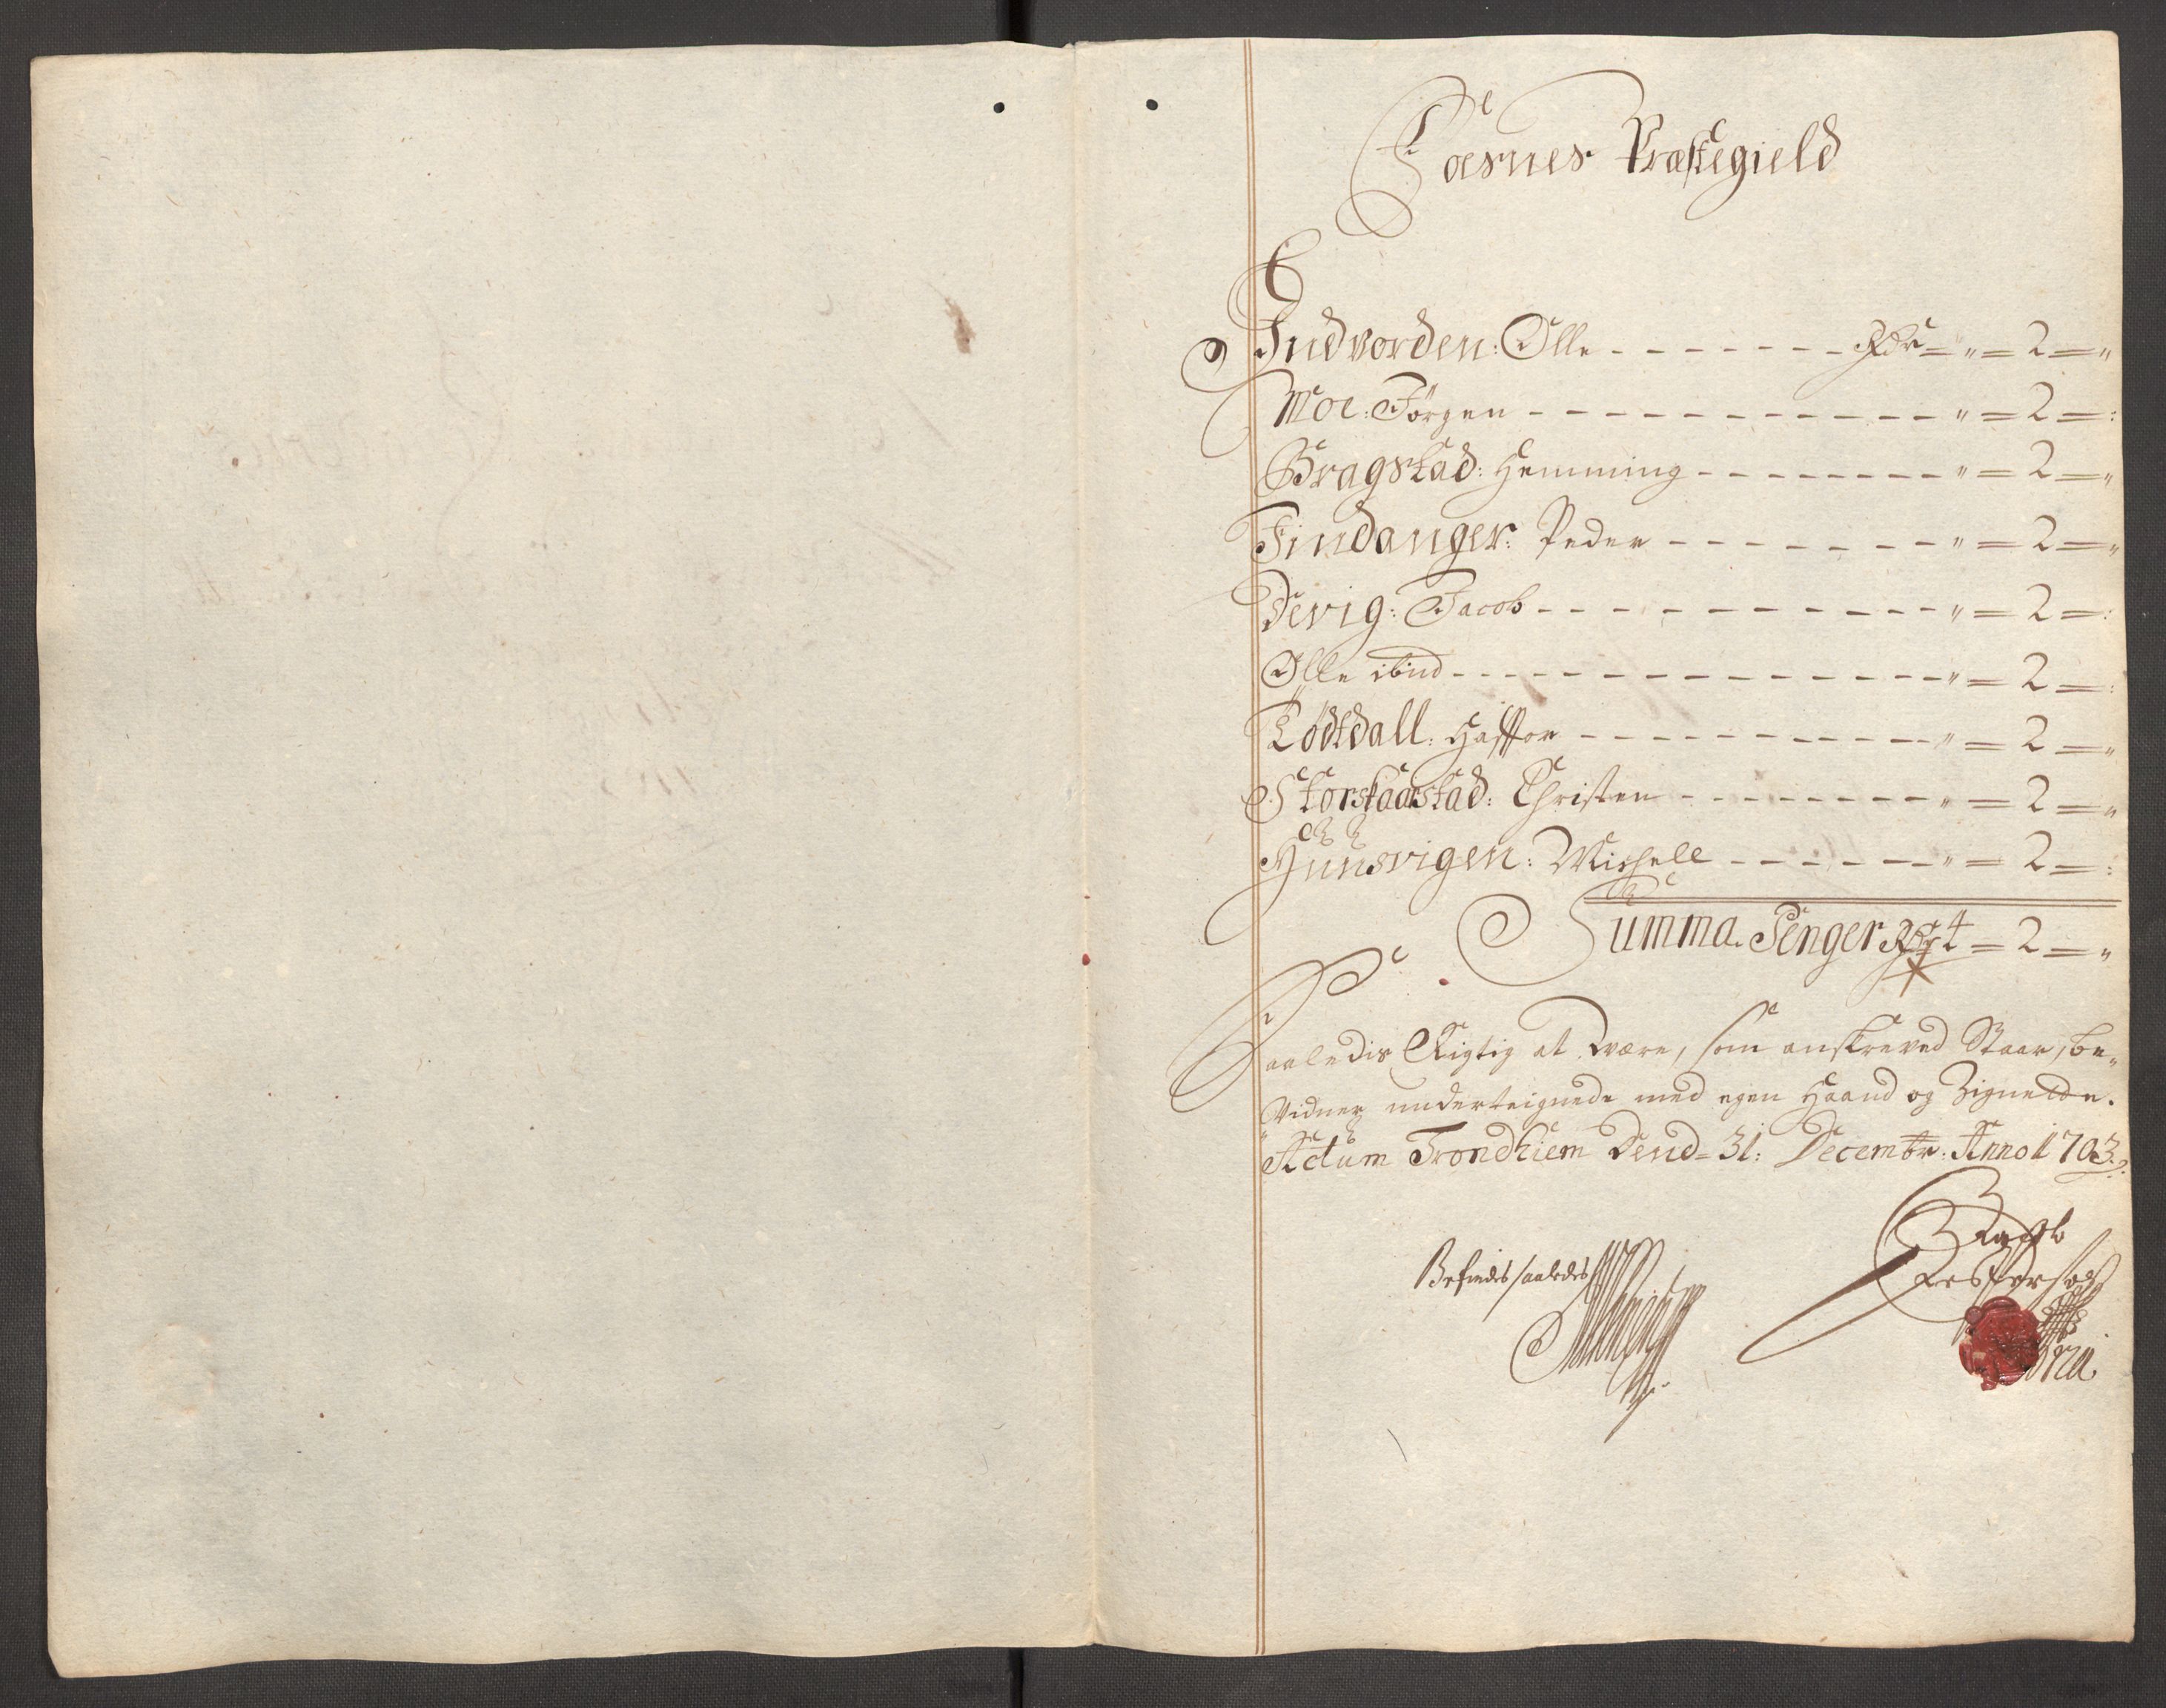 Foesnes Præstegield
Indvorden: Olle - - - - - - - Rdr = " = 2 = "
Moe: Jørgen - - - - - - - - - - - - " = 2 = :
Bragstad: Hemming - - - - - - - - " = 2 = "
Findanger: Peder - - - - - - - - " = 2 = "
Devig: Jacob - - - - - - - - - - - " = 2 = :
Olle ibid - - - - - - - - - - - - - - " = 2 = :
Lødtdall: Haffor - - - - - - - - - - - " = 2 = "
Storskaastad: Christen - - - - - - - - " = 2 = "
Hunsvigen: Michell - - - - - - " = 2 = :
Summa Penger Rdr 4 = 2 = "
Saaledis Rigtig at være, som anskreved Staar, be-
Vidner underteignede med egen Haand og Zignette.
Actum Trondhiem Dend = 31: Decembr: Anno 1703.
Befindes saaledes